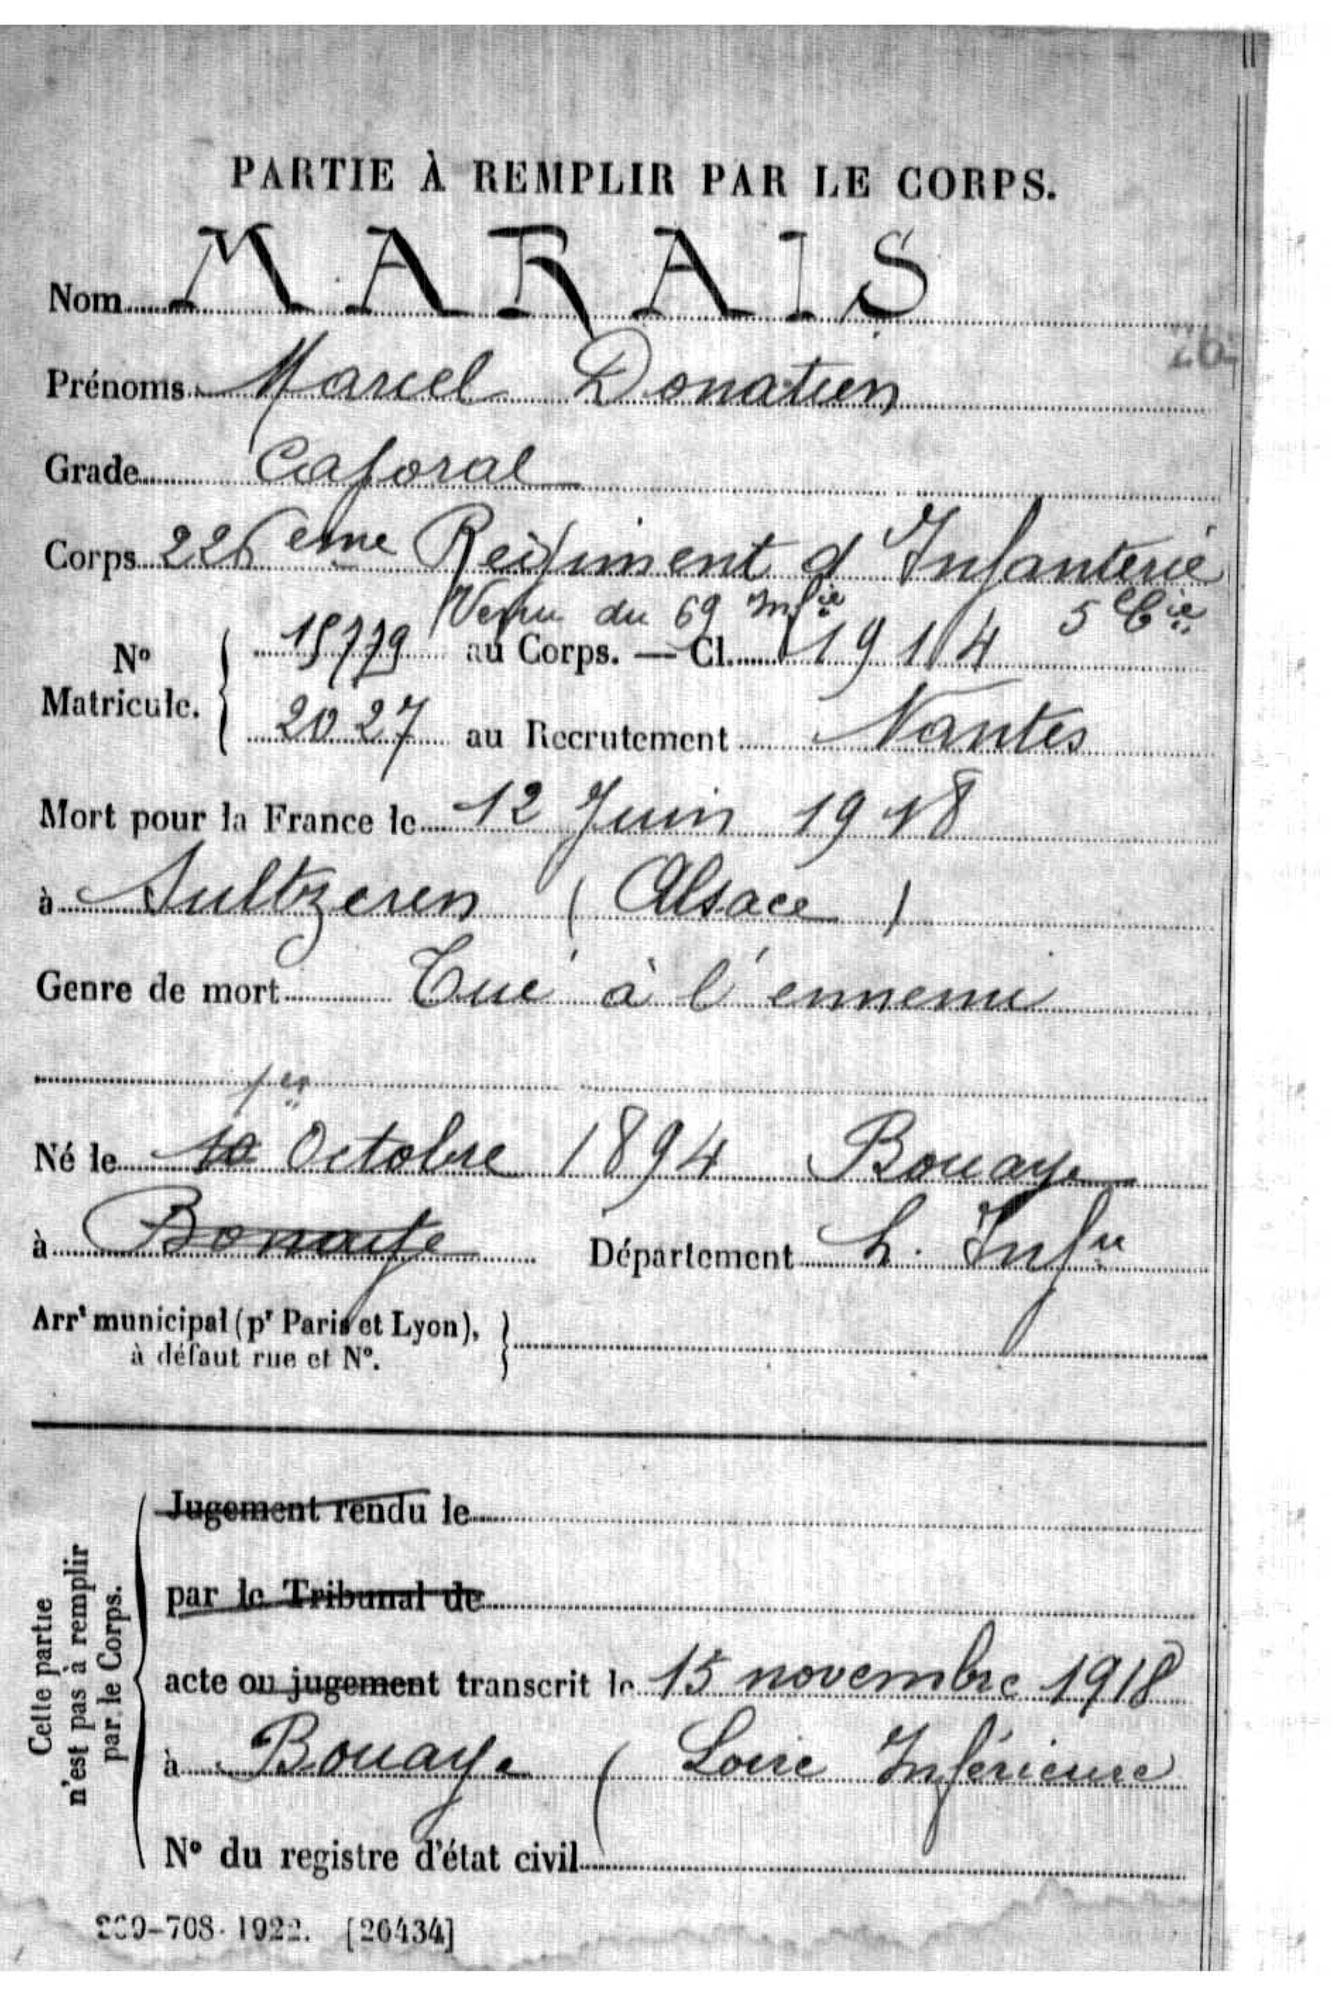 PARTIE À REMPLIR PAR LE CORPS.
Nom MARAIS
26
Prénoms Marcel Donatien
Grade Caporal
Corps 226eme Regiment d'Infanterie
Venu du 69 Infie 5 Cie
Nº Matricule. 15779 au Corps. — Cl. 1914
2027 au Recrutement Nantes
Mort pour la France le 12 Juin 1918
à Sultzeren (Alsace)
Genre de mort Tué à l'ennemi
1er
Né le 10 Octobre 1894 Bouaye
à Bonaye Département L. Infre
Arrt municipal (pr Paris et Lyon),
à défaut rue et Nº.
Cette partie
n'est pas à remplir
par le Corps.
Jugement rendu le
par le Tribunal de
acte ou jugement transcrit le 15 novembre 1918
à Bouaye (Loire Inférieure
Nº du registre d'état civil
-708- 1922. [26434]